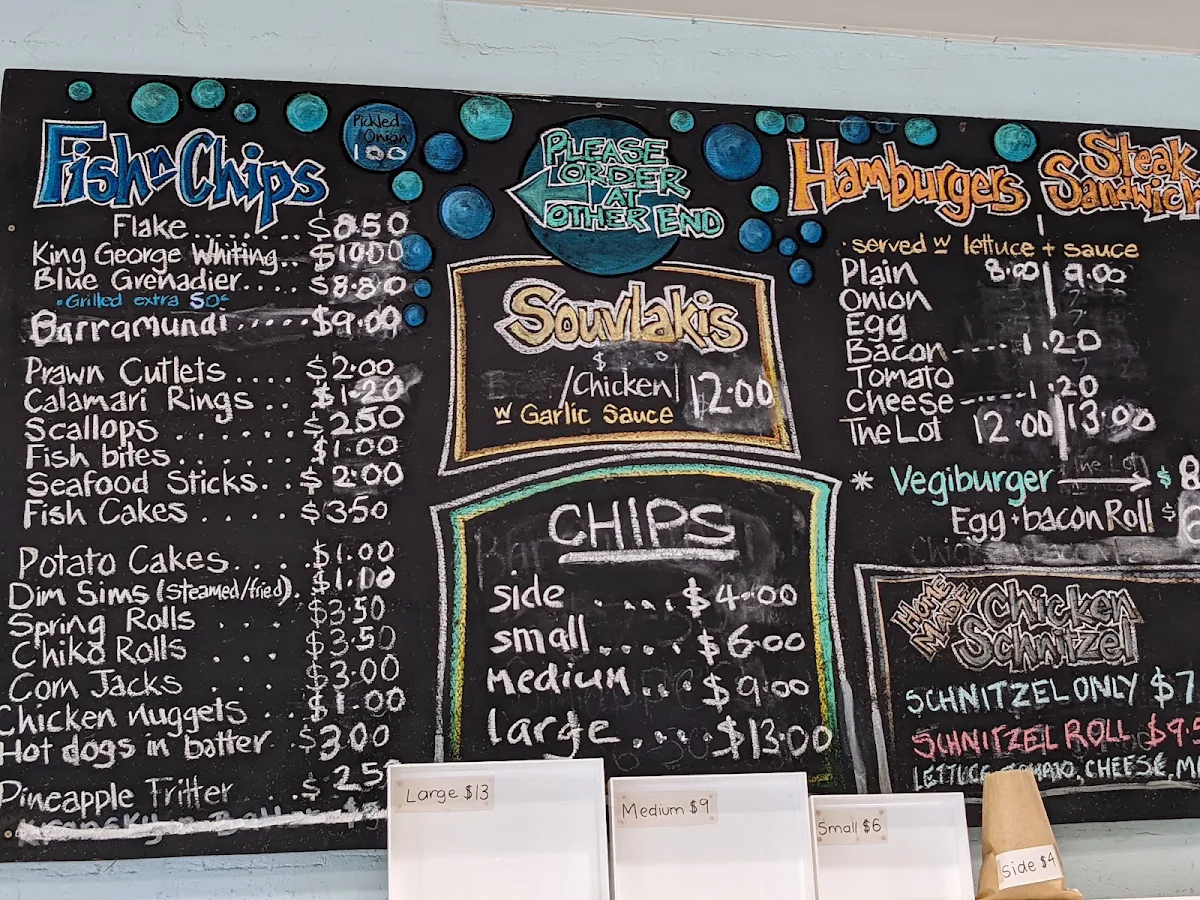 Fish n Chips
Pickled
Onion
1 00
Flake......... $8.50
King George Whiting.. $10.00
Blue Grenadier.... $8.80
• Grilled extra 50c
Barramundi...... $9.00
Prawn Cutlets .... $2.00
Calamari Rings .. $1.20
Scallops ...... $2.50
Fish bites...... $1.00
Seafood Sticks.. $2.00
Fish Cakes .... $3.50
Potato Cakes.... $1.00
Dim Sims (steamed/fried). $1.10
Spring Rolls ... $3.50
Chiko Rolls ... $3.50
Corn Jacks ... $3.00
Chicken nuggets .. $1.00
Hot dogs in batter .. $3.00
Pineapple Fritter .. $2.5
PLEASE
ORDER
AT
OTHER END
Souvlakis
/Chicken| 12.00
w Garlic Sauce
CHIPS
side ..... $4.00
small.... $6.00
medium ... $9.00
large ..... $13.00
Hamburgers
Steak
Sandwich
• served w lettuce + sauce
Plain 8.00 | 9.00
Onion
Egg
Bacon ---- 1.20
Tomato
Cheese ----- 1.20
The Lot 12.00 | 13.00
* Vegiburger The Lot → $8
Egg + bacon Roll $
HOME
MADE
Chicken
Schnitzel
SCHNITZEL ONLY $7
SCHNITZEL ROLL $9.5
LETTUCE, TOMATO, CHEESE,
Large $13
Medium $9
Small $6
Side $4